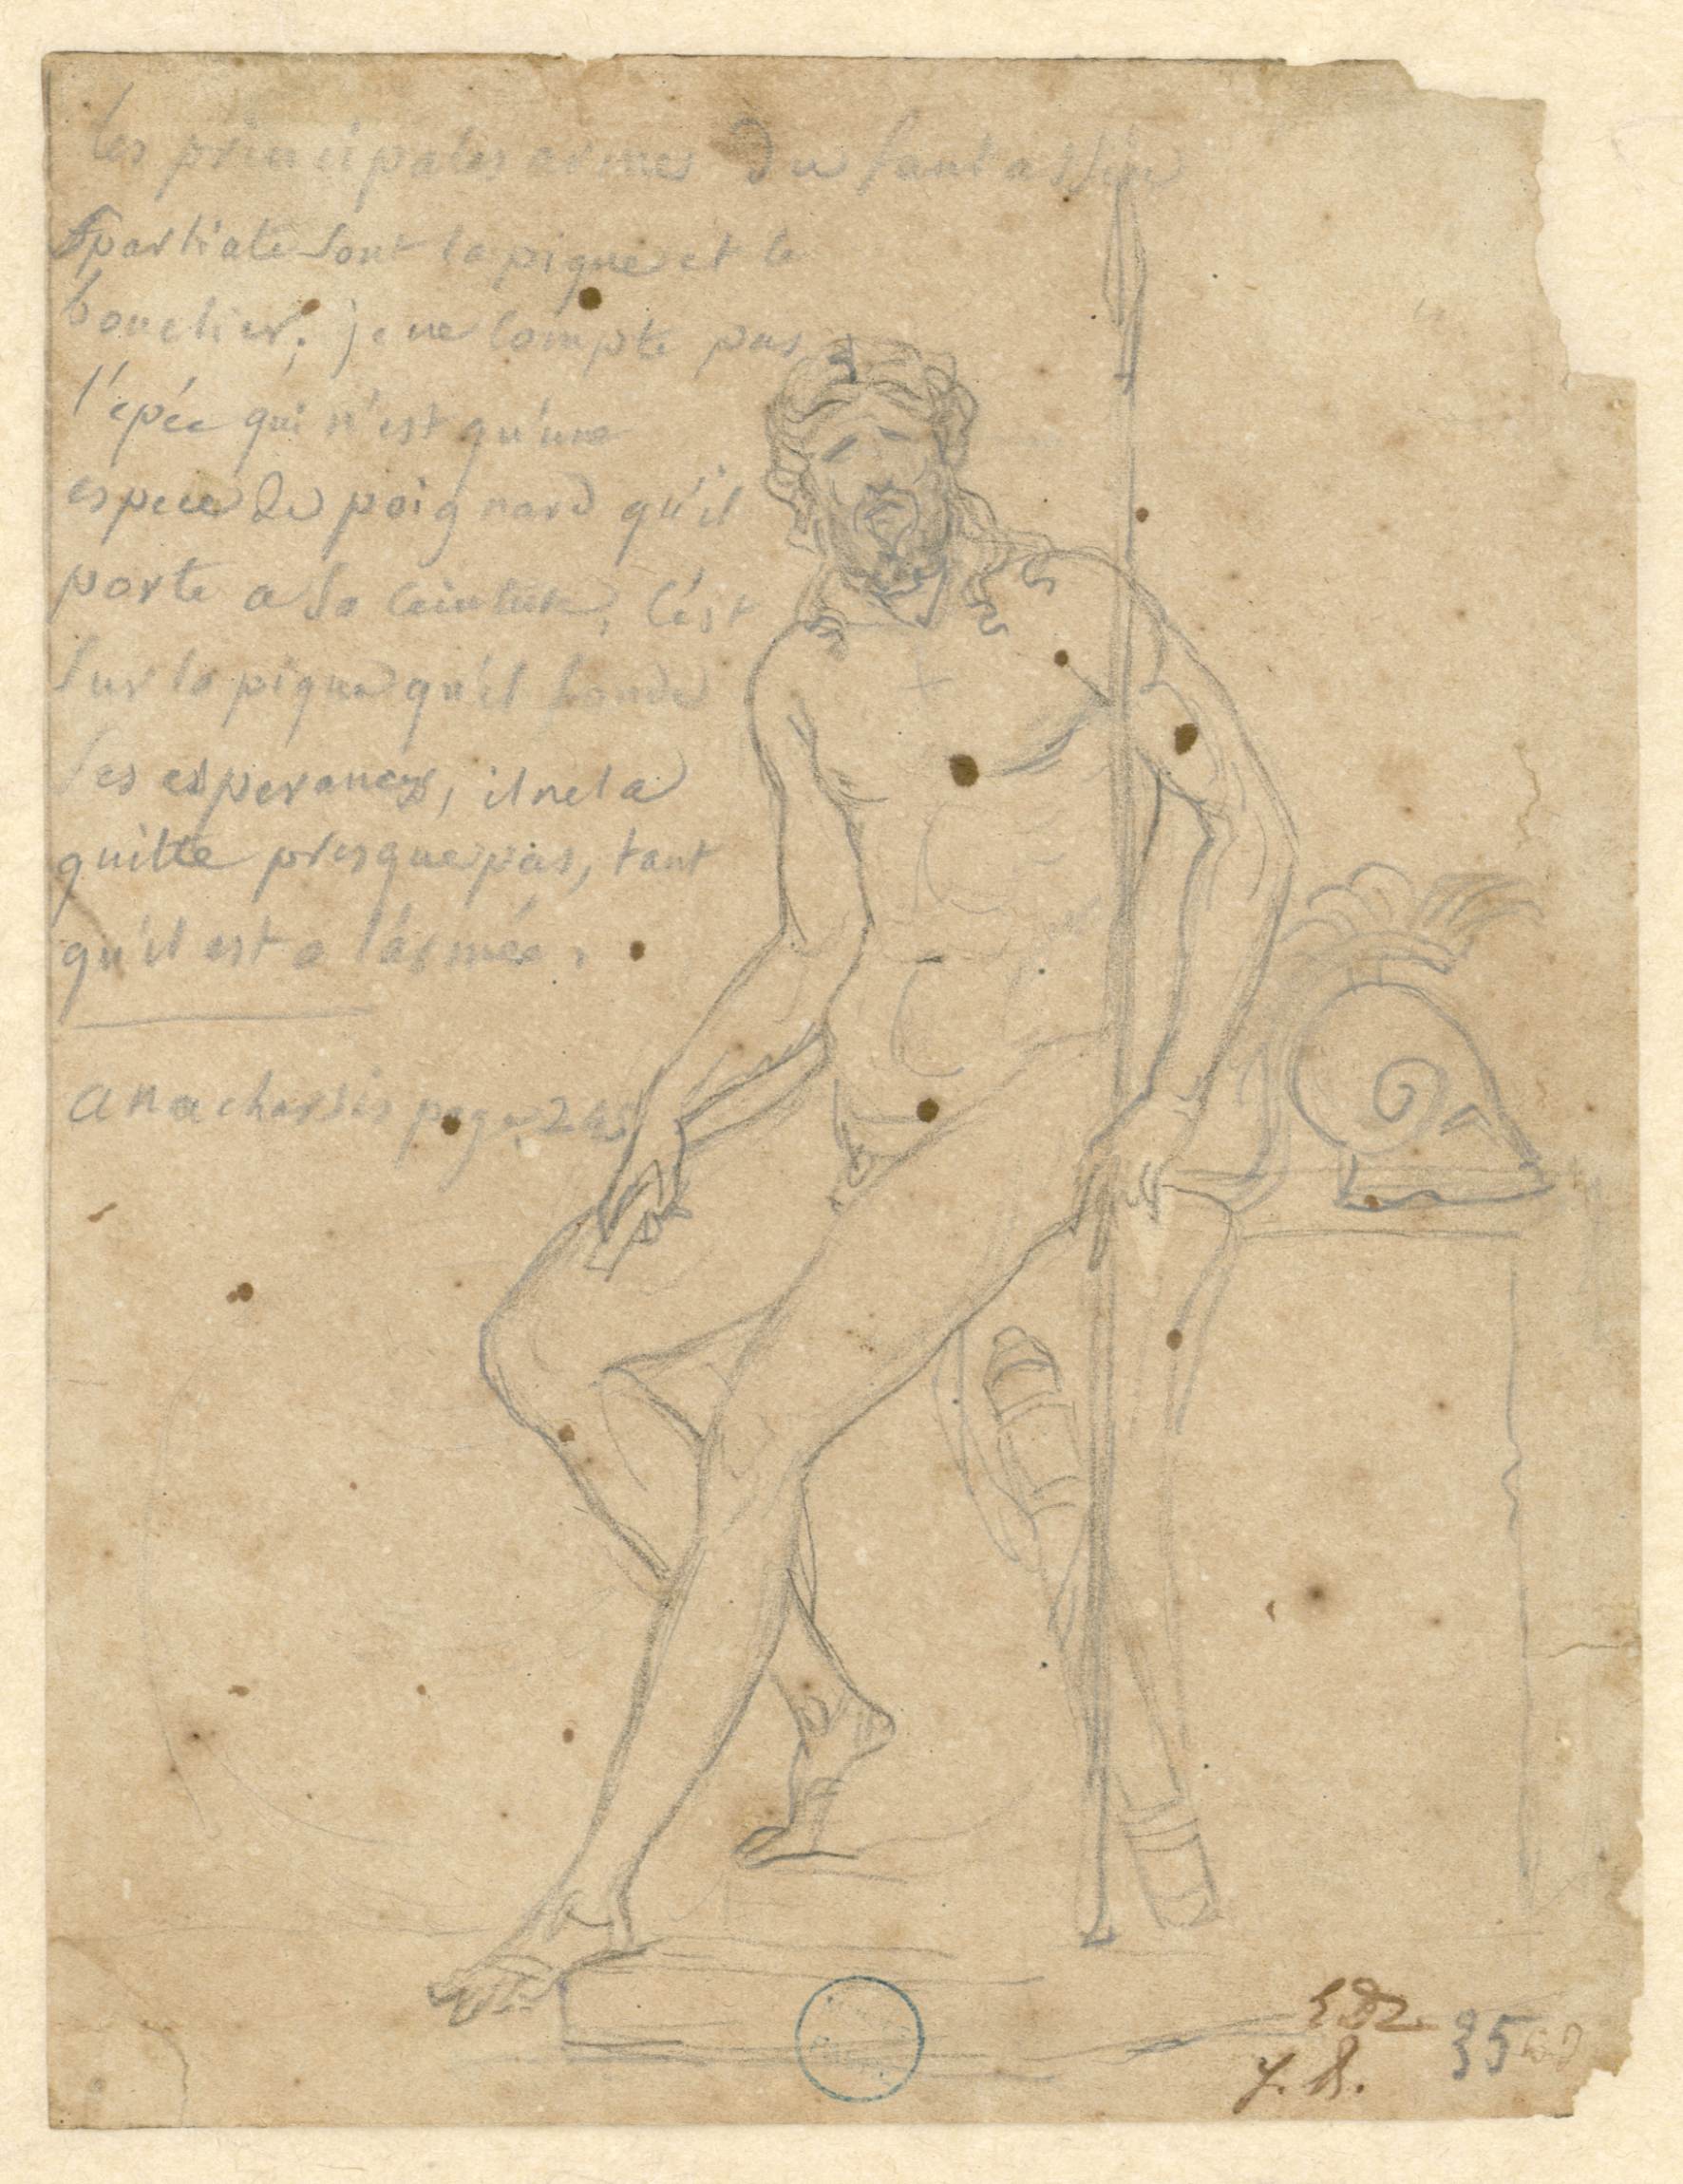 les principales armes du fantassin
Spartiate sont la pique et le
bouclier; je ne compte pas
l'épée qui n'est qu'une
espece de poignard qu'il
porte a sa ceinture, c'est
sur la pique qu'il fonde
ses esperances, il ne la
quitte presque pas, tant
qu'il est a l'armée.
anacharsis page 24
35